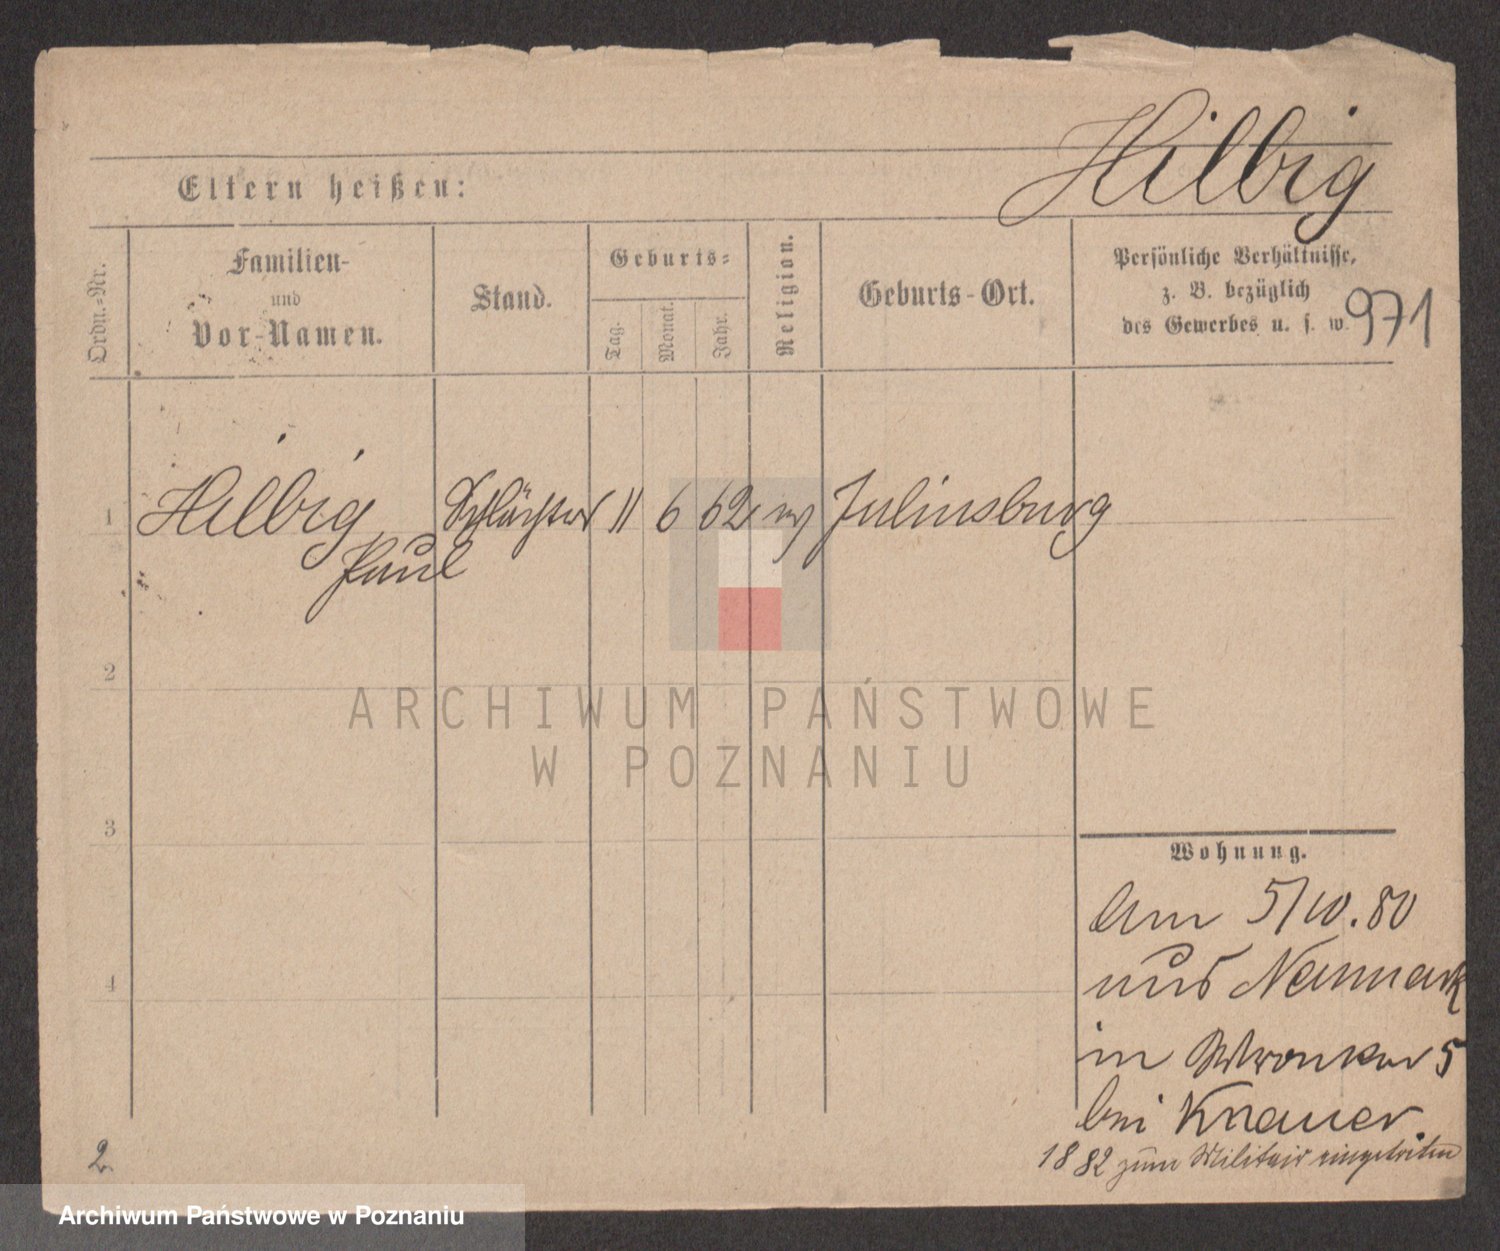 Hilbig
Eltern heißen:
Ordn.-Nr.
Familien-
und
Vor-Namen.
Stand.
Geburts-
Tag.
Monat.
Jahr.
Religion.
Geburts-Ort.
Persönliche Verhältnisse,
z. B. bezüglich
des Gewerbes u. s. w.
971
1 Hilbig Schlächter 11 6 62 Juliusburg
Paul
2
3
4
Wohnung.
Am 5/10.80
aus Neumark
in Wronker 5
bei Knauer
1882 zum Militair eingetreten
2.
ARCHIWUM PAŃSTWOWE
W POZNANIU
Archiwum Państwowe w Poznaniu